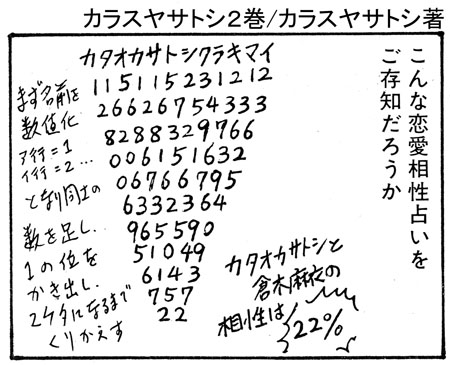 カラスヤサトシ2巻/カラスヤサトシ著
こんな恋愛相性占いを
ご存知だろうか
カタオカサトシクラキマイ
115115231212
26626754333
8288329766
006151632
06766795
6332364
965590
51049
6143
757
22
まず名前を
数値化
ア行=1
イ行=2…
となり同士の
数を足し、
1の位を
かき出し、
2ケタになるまで
くりかえす
カタオカサトシと
倉木麻衣の
相性は
22%